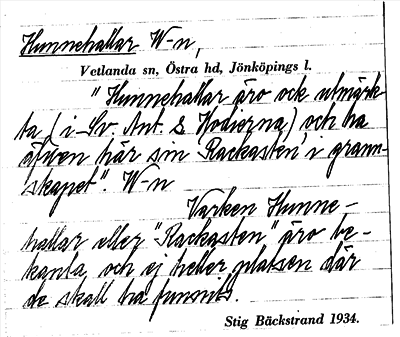 Hunnehallar W-n,
Vetlanda sn, Östra hd, Jönköpings l.
"Hunnehallar äro ock utmärk-
ta (i Sv. Ant. & Hodierna) och ha
äfven här sin 'Rackasten' i grann-
skapet". W-n
Varken Hunne-
hallar eller "Rackasten" äro be-
kanta och ej heller platsen där
de skall ha funnits.
Stig Bäckstrand 1934.